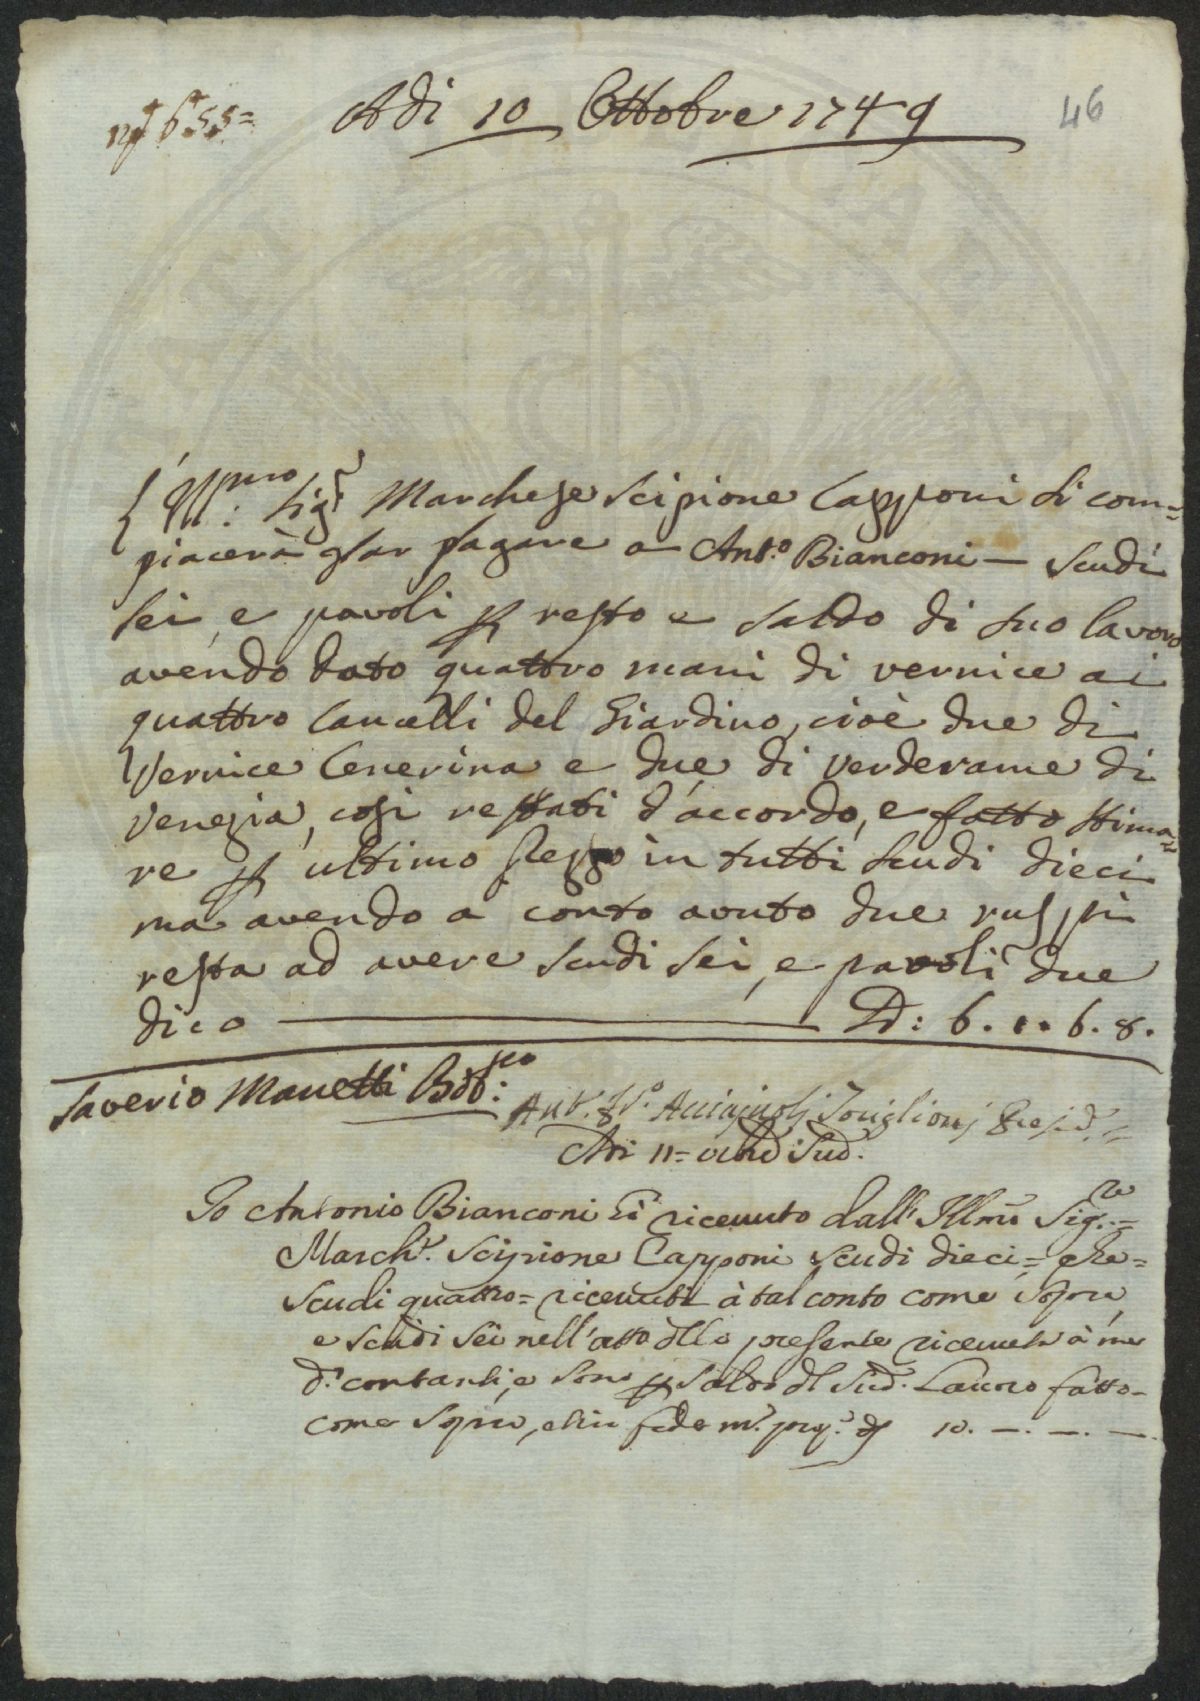 Adi 10 Ottobre 1749
46
L'Ill:mo Sig:r Marchese Scipione Capponi si com=
piacerà far pagare a Ant.o Bianconi — scudi
sei, e pavoli p resto e saldo di suo lavoro
avendo dato quattro mani di vernice ai
quattro Cancelli del Giardino, cioè due di
Vernice Cenerina e due di verderame di
Venezia, così restati d'accordo, e fatto stima=
re p ultimo prezzo in tutti scudi dieci
ma avendo a conto avuto due ruspi
resta ad avere scudi sei, e pavoli due
dico — D: 6. 1. 6. 8.
Saverio Manetti
Ant.o Acciajuoli Presid.
Adi 11 = Sud.
Io Antonio Bianconi ò ricevuto dall' Illmo Sig.re
March. Scipione Capponi scudi dieci = che =
scudi quattro = ricevuti à tal conto come Sopra,
e scudi sei nell'atto dlla presente ricevuti à me
d. contanti, e sono p saldo dl sud. Lavoro fatto =
come Sopra, e in fede m. pp. 10. —. —. —.